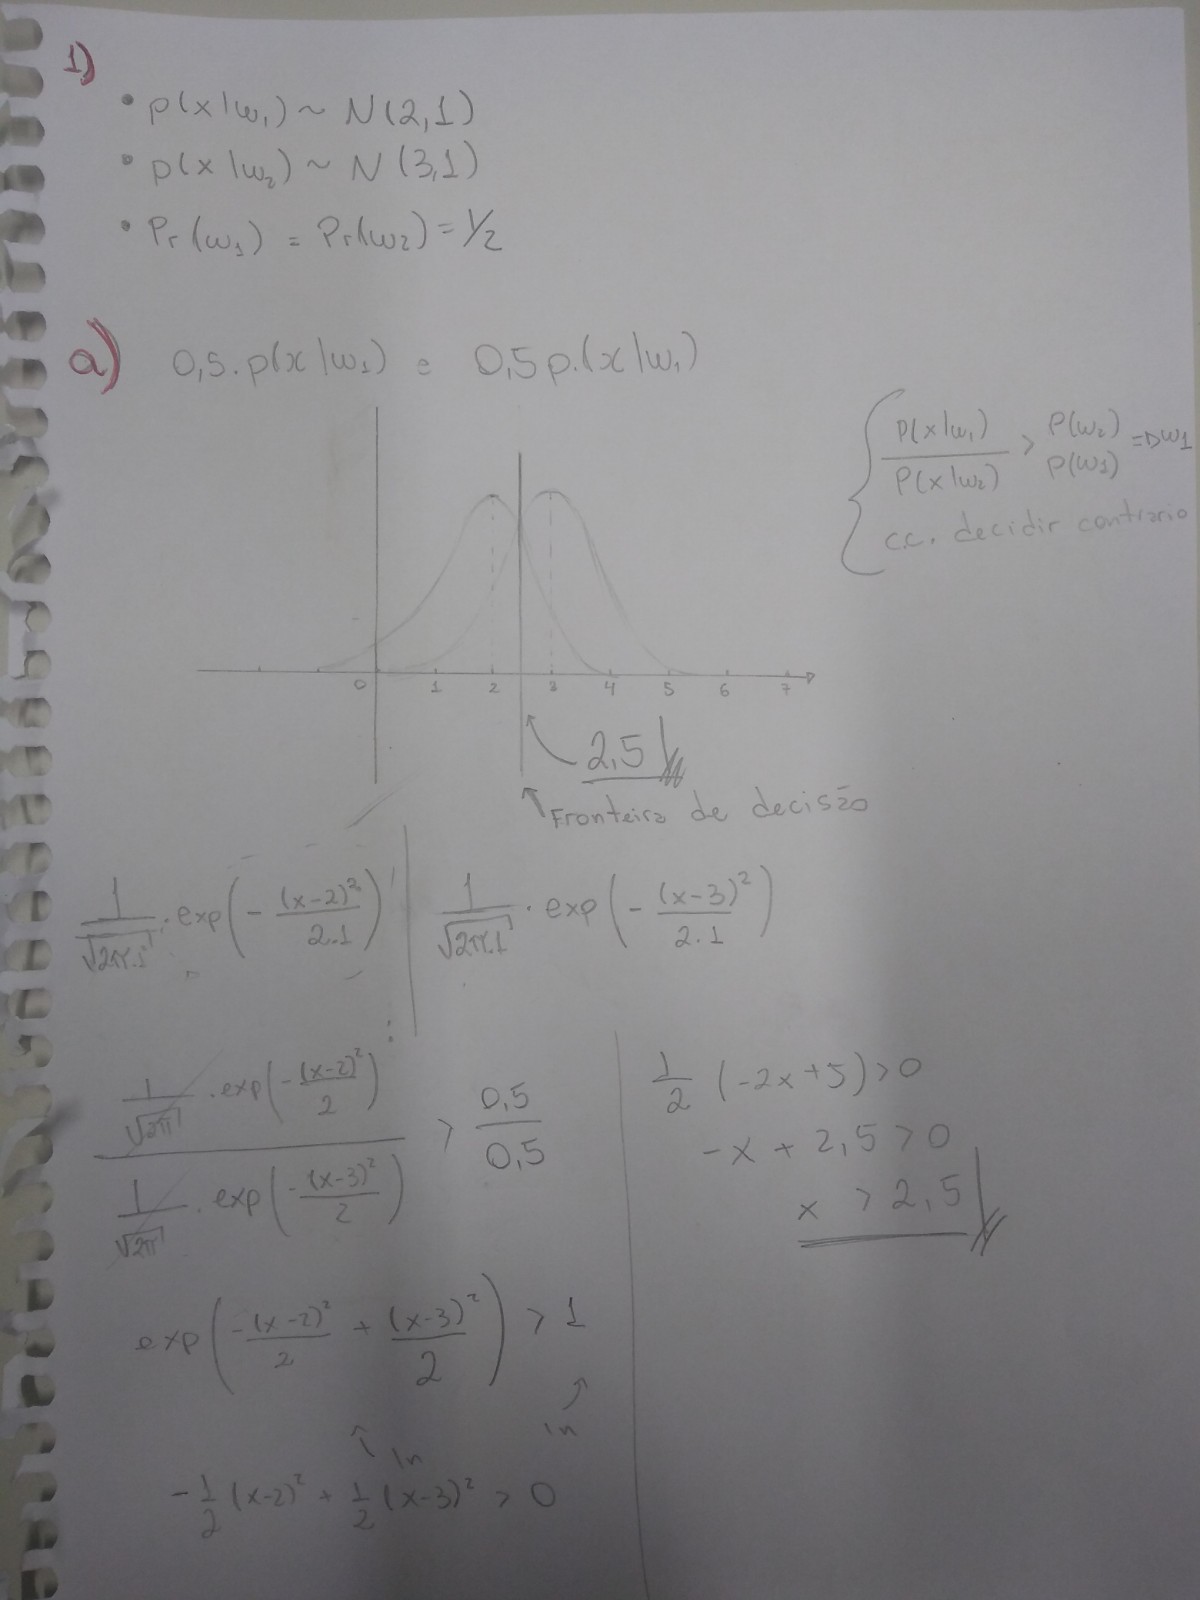 1)
• p(x|w₁) ~ N(2,1)
• p(x|w₂) ~ N(3,1)
• Pr(w₁) = Pr(w₂) = 1/2
a) 0,5.p(x|w₁) e 0,5p.(x|w₁)
{ P(x|w₁)/P(x|w₂) > P(w₂)/P(w₁) => w1
c.c. decidir contrario
0 1 2 3 4 5 6 7
2,5
Fronteira de decisão
1/√2π.1 . exp(-(x-2)²/2.1) | 1/√2π.1 . exp(-(x-3)²/2.1)
1/√2π . exp(-(x-2)²/2) / 1/√2π . exp(-(x-3)²/2) > 0,5/0,5
exp(-(x-2)²/2 + (x-3)²/2) > 1
ln ln
-1/2(x-2)² + 1/2(x-3)² > 0
1/2(-2x+5)>0
-x + 2,5 > 0
x > 2,5